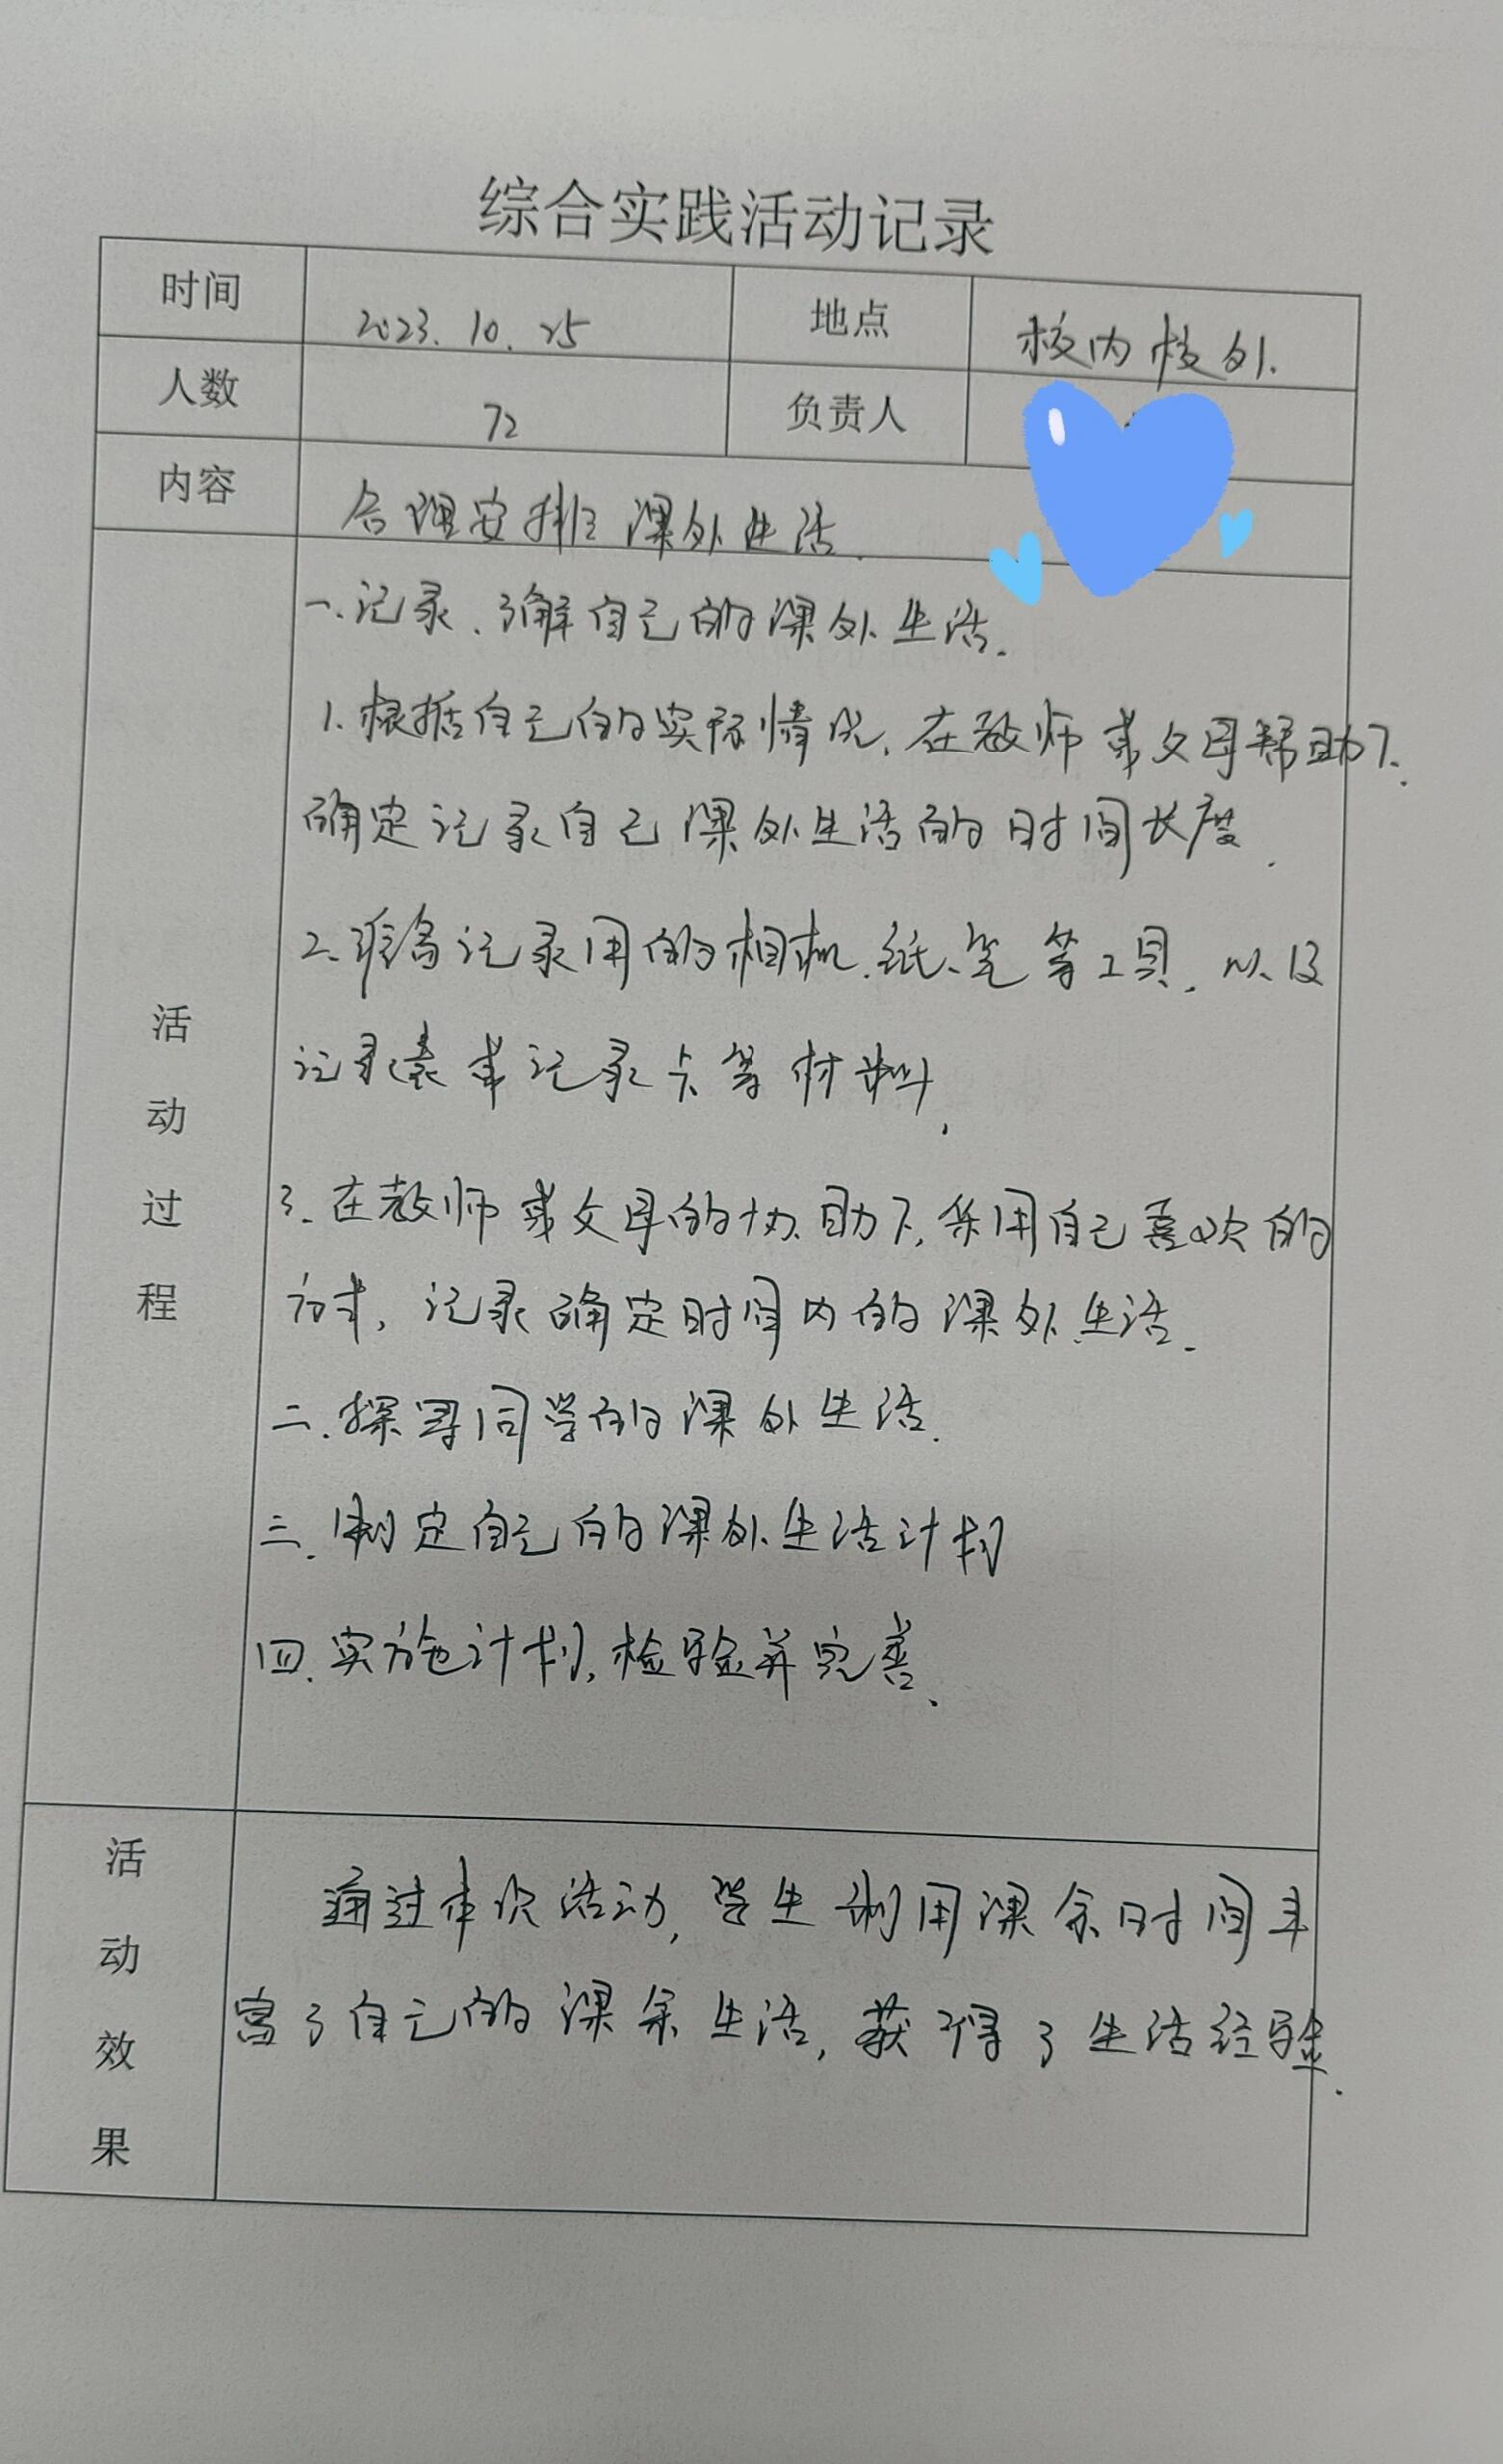 综合实践活动记录
时间 2023.10.25 地点 校内校外.
人数 72 负责人
内容 合理安排课外生活.
活动过程
一.记录、了解自己的课外生活.
1.根据自己的实际情况,在教师或父母帮助下,
确定记录自己课外生活的时间长度.
2.准备记录用的相机、纸、笔等工具,以及
记录表或记录卡等材料,
3.在教师或父母的协助下,采用自己喜欢的
方式,记录确定时间内的课外生活.
二.探寻同学的课外生活.
三.制定自己的课外生活计划
四.实施计划,检验并完善、
活动效果
通过本次活动,学生利用课余时间丰
富了自己的课余生活,获得了生活经验.